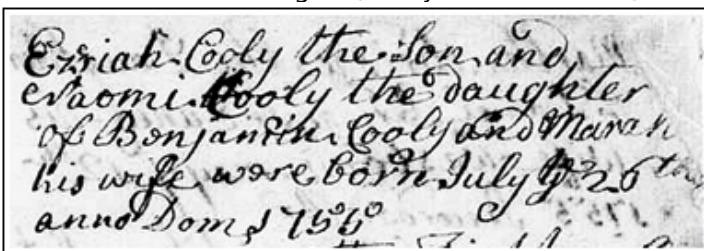 Ezriah Cooly the Son and
Naomi Cooly the daughter
of Benjamin Cooly and Marah
his wife were born July ye 26th
anno Dom 1755